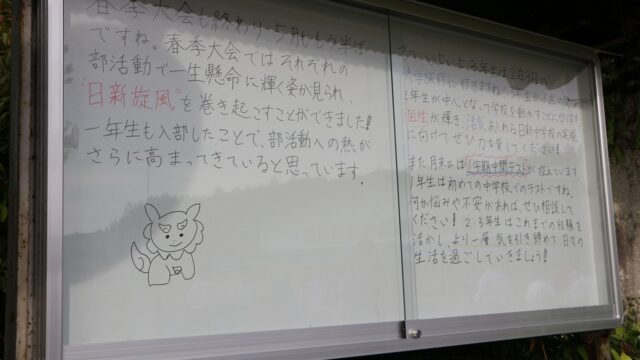 春季大会も終わり、5月ももう半ば
ですね。春季大会ではそれぞれの
部活動で一生懸命に輝く姿が見られ、
"日新旋風"を巻き起こすことができました!!
一年生も入部したことで、部活動への熱が
さらに高まってきていると思っています。
さて、いよいよ3年生は2泊3日で
修学旅行に行きますね。3年生が不在の
2年生が中心となって学校を動かすことになります。
個性が輝き、活気あふれる日新中学校の実現
に向けてぜひ力を発してください!
また、月末には1学期中間テストが控えています。
1年生は初めての中学校でのテストですね。
何か悩みや不安があれば、ぜひ相談して
ください! 2・3年生はこれまでの経験を
活かし、より一層 気を引き締めて 日々の
生活を過ごしていきましょう!!